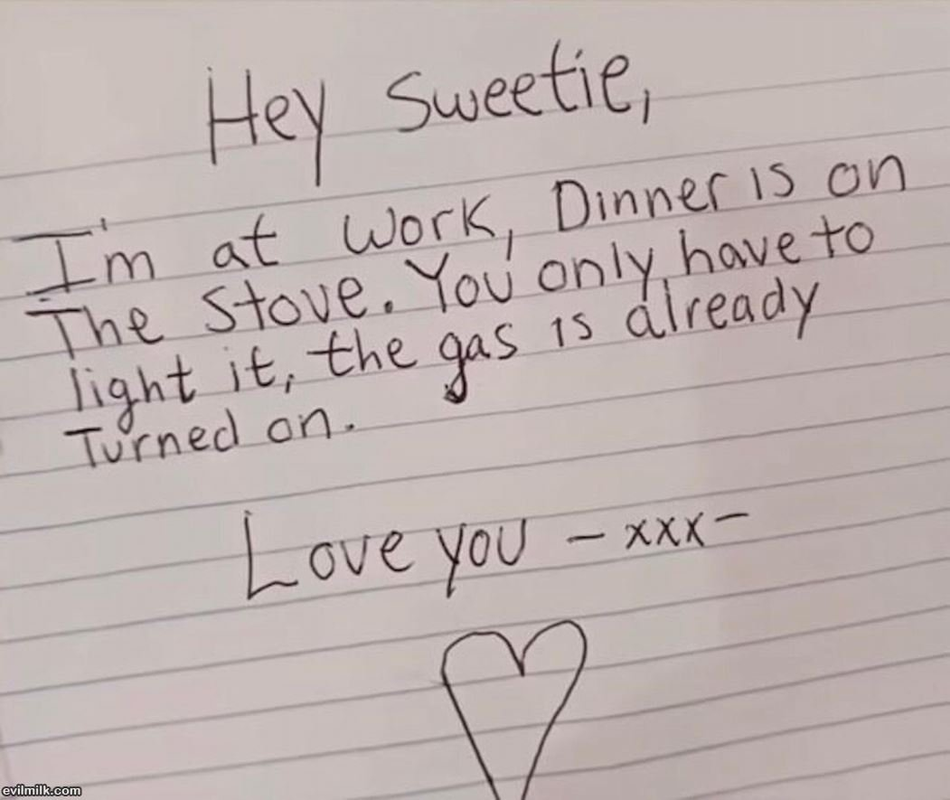 Hey Sweetie,
I'm at work, Dinner is on
The Stove. You only have to
light it, the gas is already
Turned on.
Love you - xxx -
evilmilk.com